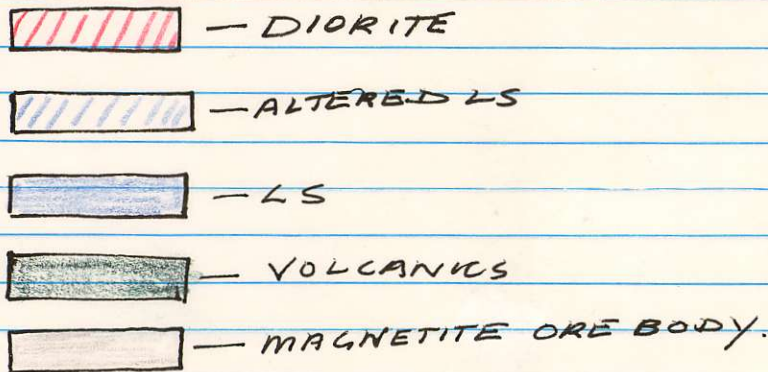 — DIORITE
— ALTERED LS
— LS
— VOLCANICS
— MAGNETITE ORE BODY.